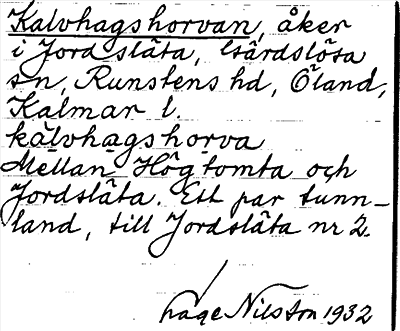 Kalvhagshorvan, åker
i Jordsläta, Gärdslösa
sn, Runstens hd, Öland,
Kalmar l.
kalvhagshorva
Mellan Högtomta och
Jordsläta. Ett par tunn-
land, till Jordsläta nr 2.
Åage Nilsson 1932